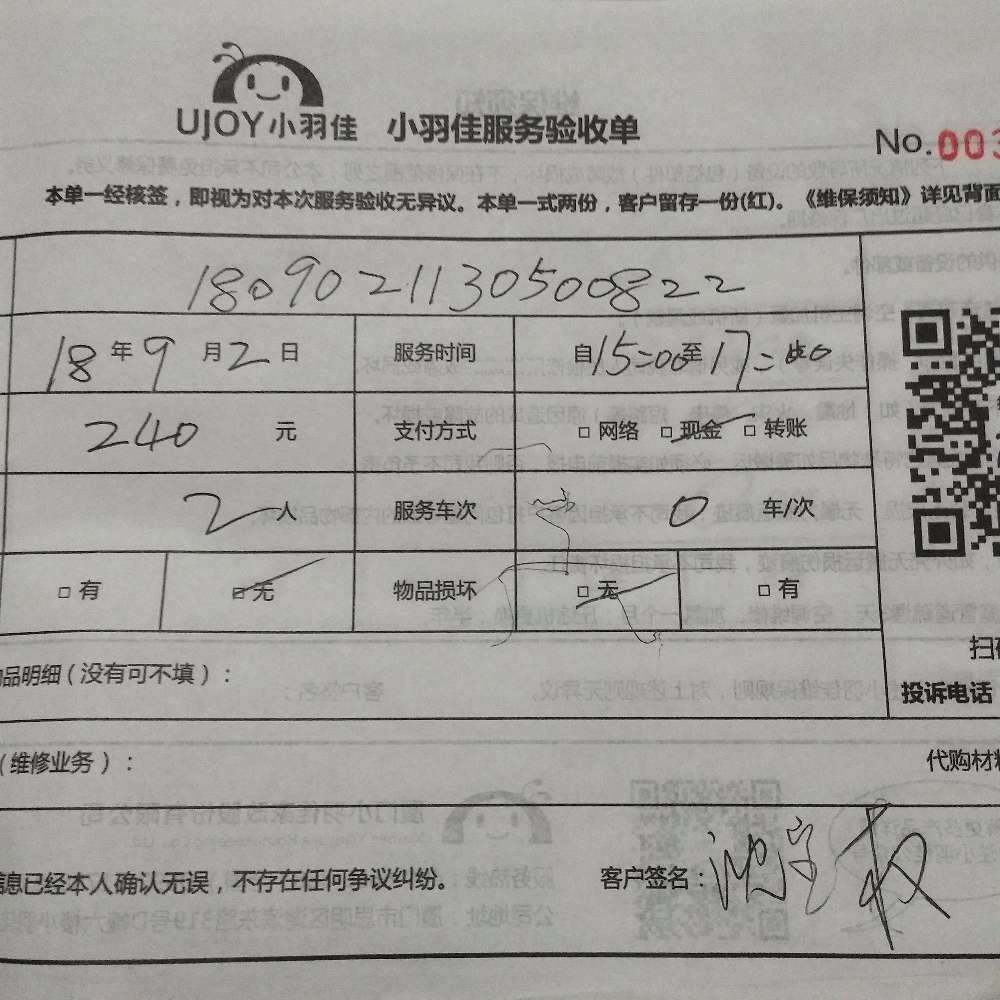 UJOY小羽佳 小羽佳服务验收单
No.003
本单一经核签，即视为对本次服务验收无异议。本单一式两份，客户留存一份(红)。《维保须知》详见背面
1809021130500822
18年9月2日 服务时间 自15:00至17:00
240元 支付方式 □网络 □现金 □转账
2人 服务车次 0车/次
□有 □无 物品损坏 □无 □有
品明细(没有可不填)：
投诉电话
(维修业务)：
代购材料
信息已经本人确认无误，不存在任何争议纠纷。 客户签名：